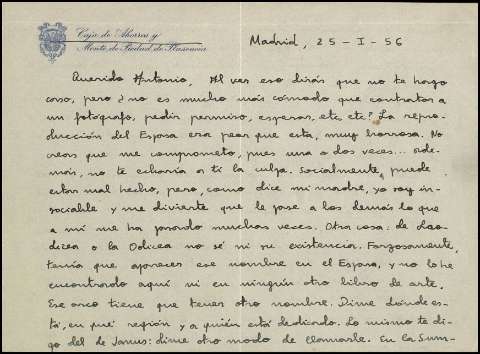 Caja de Ahorros y
Monte de Piedad de Plasencia
Madrid, 25-I-56
Querido Antonio, Al ver eso dirás que no te hago
caso, pero ¿no es mucho más cómodo que contratar a
un fotógrafo, pedir permiso, esperar, etc, etc? La repro-
ducción del Espasa era peor que esta, muy borrosa. No
creas que me comprometo, pues una o dos veces... ade-
más, no te echaría a ti la culpa. Socialmente, puede
estar mal hecho, pero, como dice mi madre, yo soy in-
sociable y me divierte que le pase a los demás lo que
a mí me ha pasado muchas veces. Otra cosa: de Lao-
dicea o la Odicea no sé ni su existencia. Forzosamente,
tenía que aparecer ese nombre en el Espasa, y no lo he
encontrado aquí ni en ningún otro libro de arte.
Ese arco tiene que tener otro nombre. Dime dónde es-
tá, en qué región y a quién está dedicado. Lo mismo te di-
go del de Janus: dime otro modo de llamarle. En la Sum-